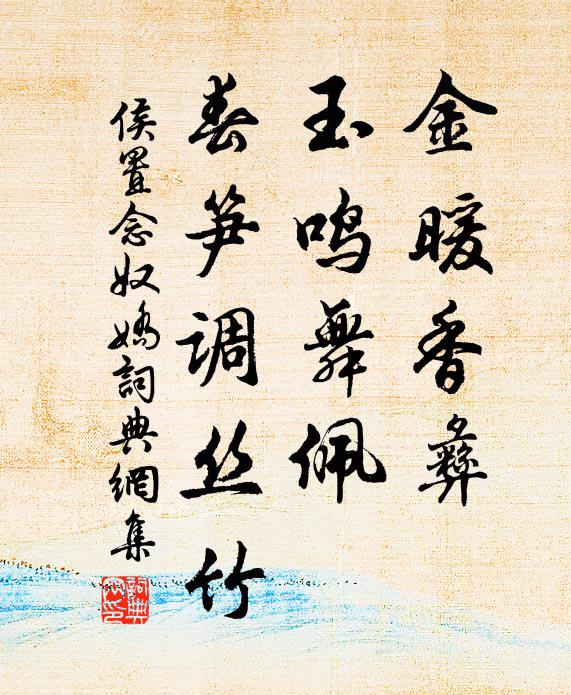 金暖香彝
玉鸣舞佩
春笋调丝竹
侯置念奴娇詞典網集